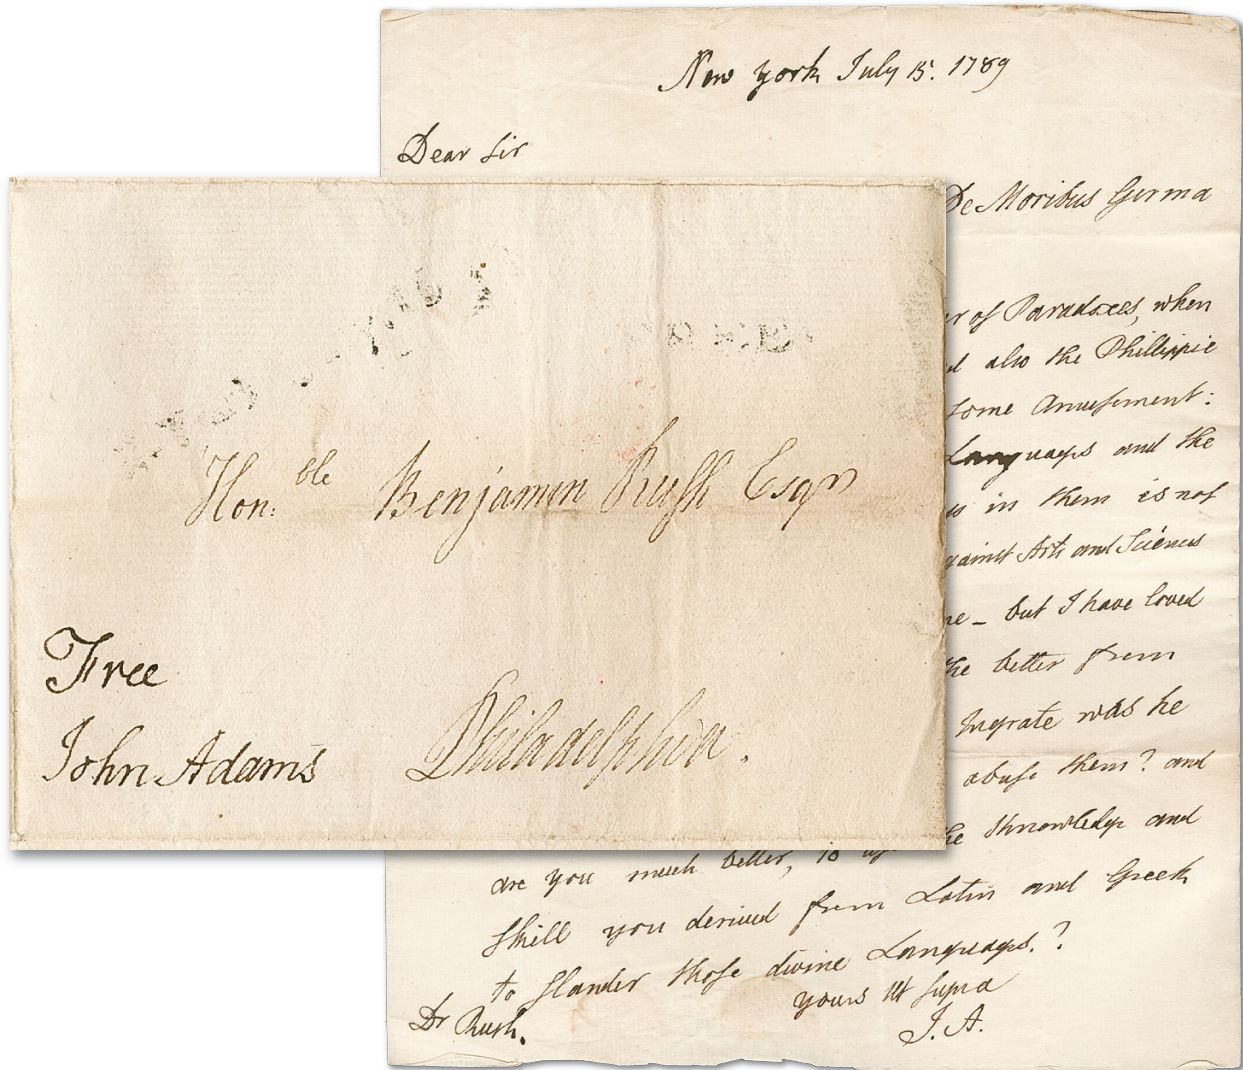 New York July 15. 1789
Dear Sir
De Moribus Germa
of Paradoxes, when
also the Phillippic
some Amusement:
Languages and the
in them is not
against Arts and Sciences
but I have loved
the better from
Ingrate was he
abuse them? and
the Knowledge and
are you much better, to
skill you derived from Latin and Greek
to slander those divine Languages.?
yours ut supra
J. A.
Dr Rush.
Hon:ble Benjamin Rush Esqr
Free
John Adams
Philadelphia.